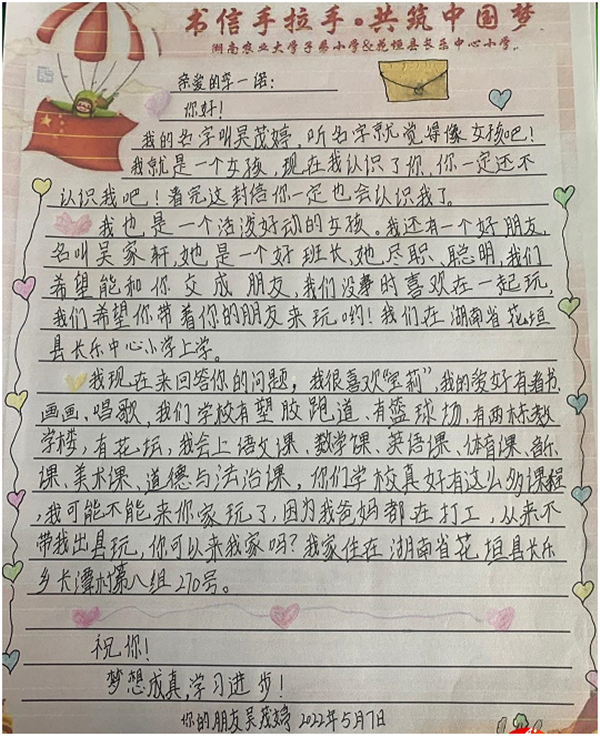 书信手拉手·共筑中国梦
湖南农业大学子弟小学&花垣县长乐中心小学
亲爱的李一诺:
你好!
我的名字叫吴茂婷,听名字就觉得像女孩吧!
我就是一个女孩,现在我认识了你,你一定还不
认识我吧!看完这封信你一定也会认识我了。
我也是一个活泼好动的女孩。我还有一个好朋友,
名叫吴家轩,她是一个好班长,她尽职、聪明,我们
希望能和你交成朋友,我们没事时喜欢在一起玩,
我们希望你带着你的朋友来玩哟!我们在湖南省花垣
县长乐中心小学上学。
我现在来回答你的问题,我很喜欢“宝莉”,我的爱好有看书、
画画、唱歌,我们学校有塑胶跑道、有篮球场,有两栋教
学楼,有花坛,我会上语文课、数学课、英语课、体育课、音乐
课、美术课、道德与法治课,你们学校真好有这么多课程
,我可能不能来你家玩了,因为我爸妈都在打工,从来不
带我出县玩,你可以来我家吗?我家住在湖南省花垣县长乐
乡长潭村第八组270号。
祝你!
梦想成真,学习进步!
你的朋友吴茂婷 2022年5月7日